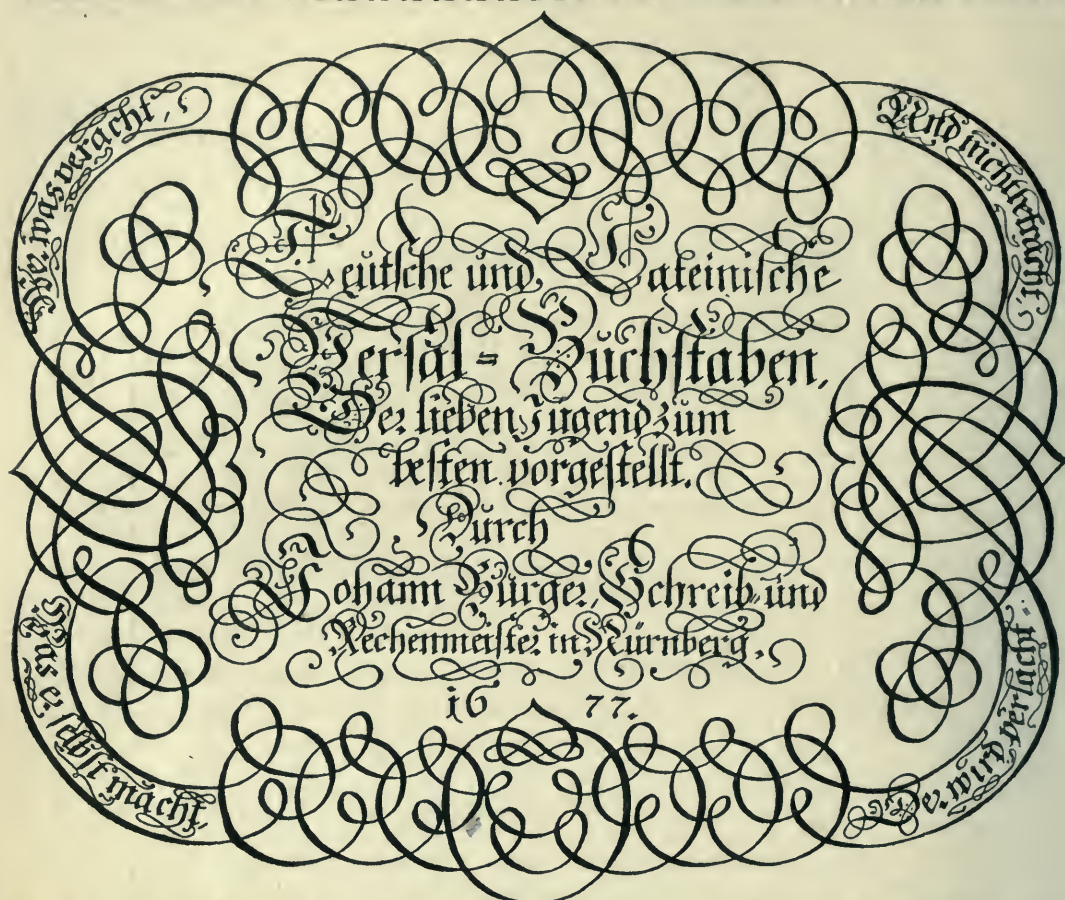 Wer was veracht,
Und nicht betracht,
Teutsche und Lateinische
Versal=Buchstaben,
Der lieben Jugend zum
besten vorgestellt.
Durch
Johann Burger, Schreib- und
Rechenmeister in Nürnberg.
1677.
Was er selbst macht,
Der wird verlacht.